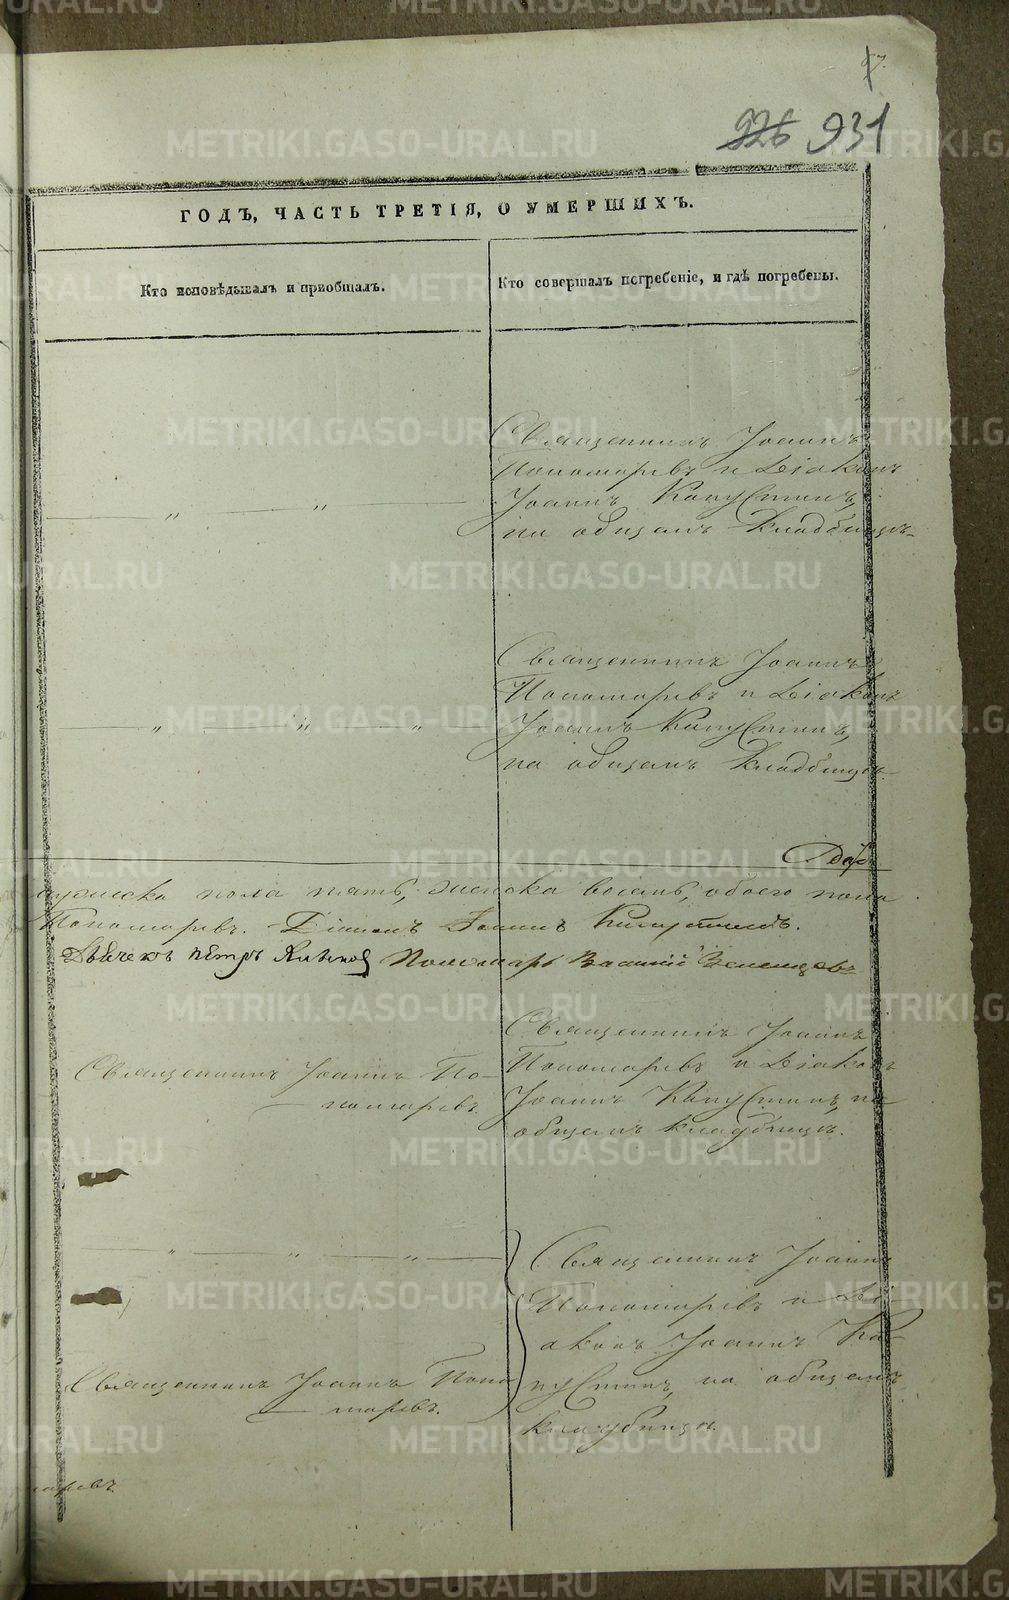 926 931
ГОДЪ, ЧАСТЬ ТРЕТІЯ, О УМЕРШИХЪ.
Кто исповѣдывалъ и пріобщалъ.
Кто совершалъ погребеніе, и гдѣ погребены.
Священникъ Іоаннъ
Пономаревъ и Діаконъ
Іоаннъ Капустинъ,
на общемъ кладбищѣ.
Священникъ Іоаннъ
Пономаревъ и Діаконъ
Іоаннъ Капустинъ,
на общемъ кладбищѣ.
мужеска пола пять, женска восемь, обоего пола
Пономаревъ. Діаконъ Іоаннъ Капустинъ.
Дьячекъ Петръ Пономарь Василій
Священникъ Іоаннъ По-
номаревъ.
Священникъ Іоаннъ
Пономаревъ и Діаконъ
Іоаннъ Капустинъ, на
общемъ кладбищѣ.
Священникъ Іоаннъ
Пономаревъ и Ді-
аконъ Іоаннъ Ка-
пустинъ, на общемъ
кладбищѣ.
Священникъ Іоаннъ Поно
маревъ.
маревъ.
METRIKI.GASO-URAL.RU